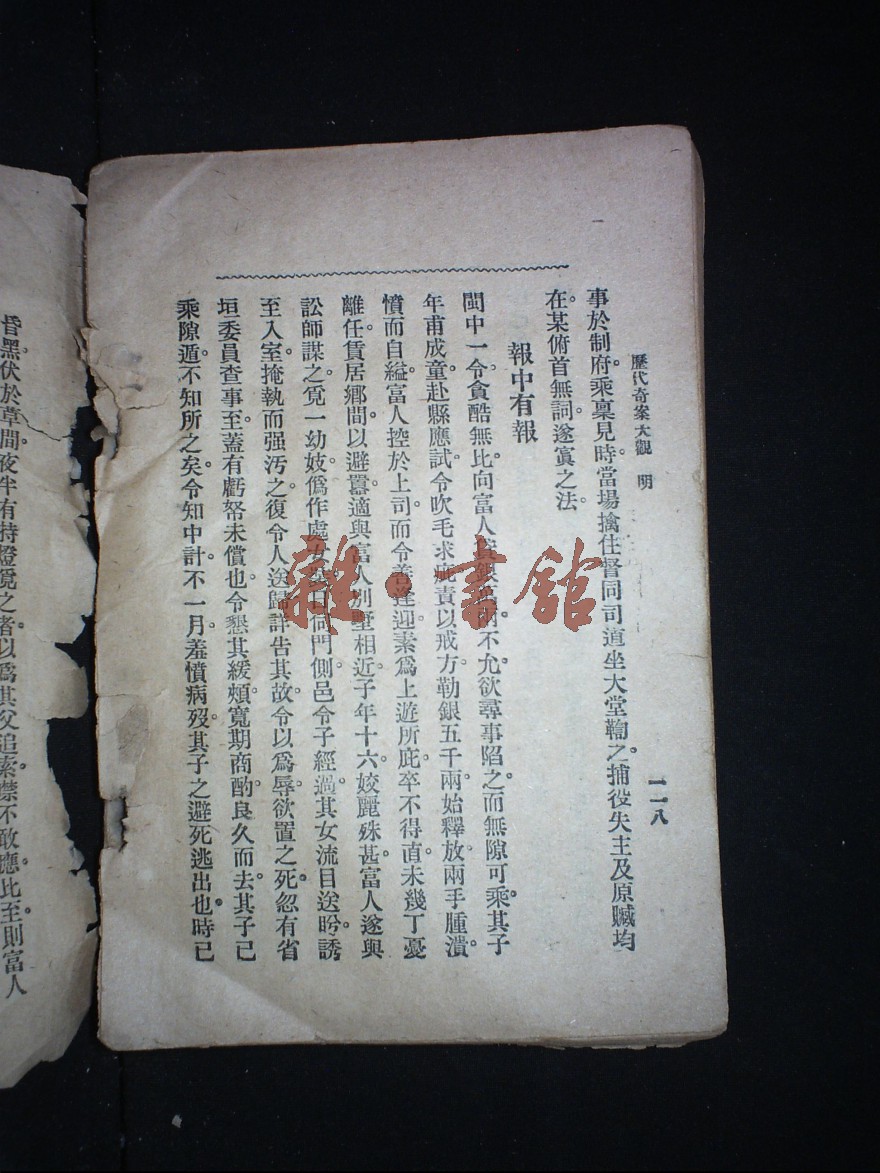 歷代奇案大觀　明
一一八
事於制府。乘稟見時。當場擒住。督同司道坐大堂鞫之。捕役失主及原贓均
在。某俯首無詞。遂寘之法。
報中有報
閩中一令。貪酷無比。向富人 銀 不允。欲尋事陷之。而無隙可乘。其子
年甫成童。赴縣應試。令吹毛求疵。責以戒方。勒銀五千兩。始釋放。兩手腫潰。
憤而自縊。富人控於上司。而令善逢迎。素爲上遊所庇。卒不得直。未幾丁憂
離任。賃居鄉間以避囂。適與富人別墅相近。子年十六。姣麗殊甚。富人遂與
訟師謀之。覓一幼妓。僞作處女。 門側。邑令子經過。其女流目送盻。誘
至入室。掩執而强汚之。復令人送歸。詳告其故。令以爲辱。欲置之死。忽有省
垣委員查事至。蓋有虧帑未償也。令懇其緩頰寬期。商酌良久而去。其子已
乘隙遁。不知所之矣。令知中計。不一月。羞憤病歿。其子之避死逃出也。時已
昏黑。伏於草間。夜半有持燈覓之者。以爲其父追索。噤不敢應。比至。則富人
雜·書舘